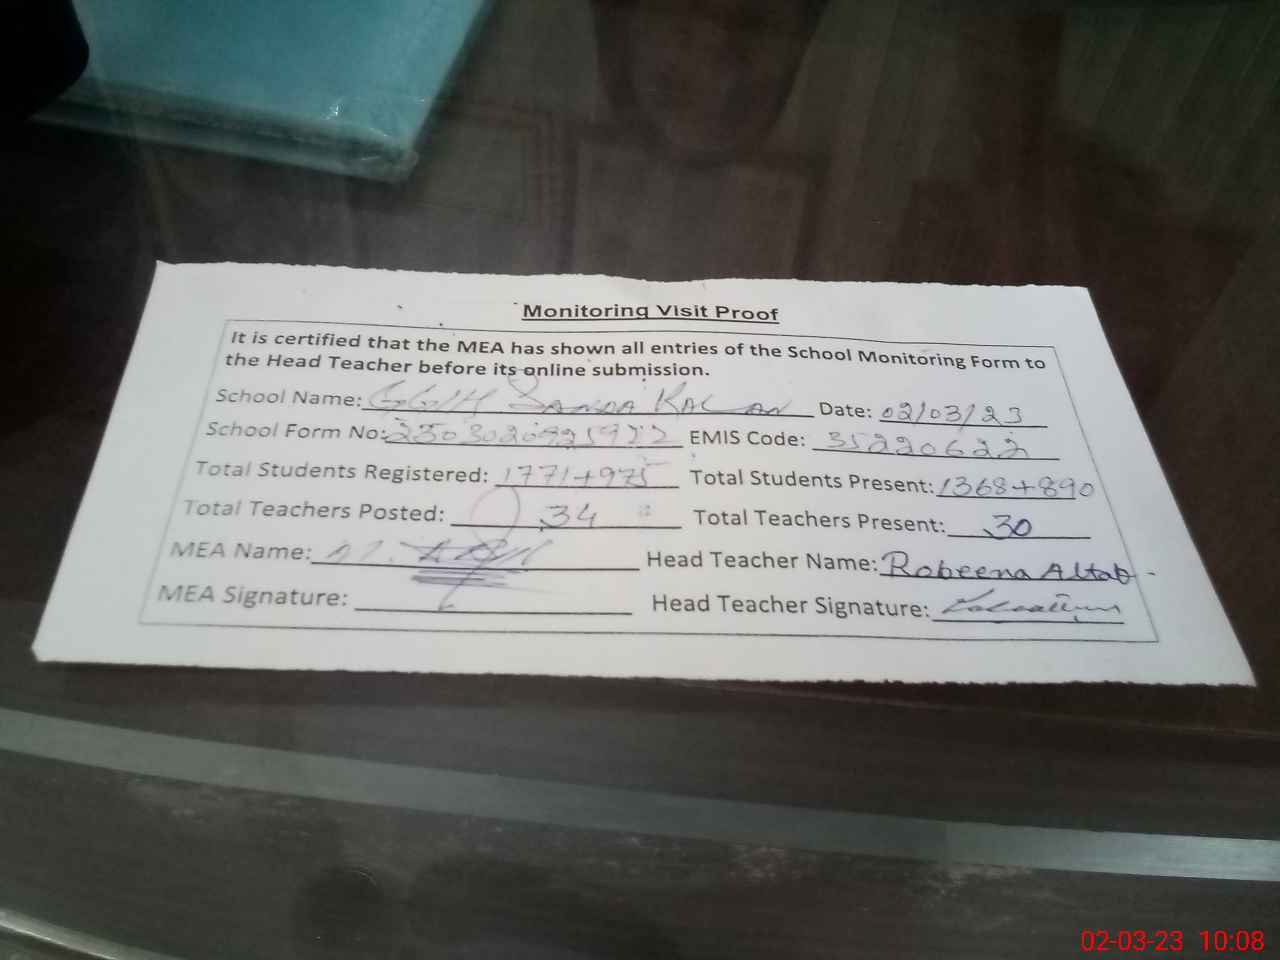 Monitoring Visit Proof
It is certified that the MEA has shown all entries of the School Monitoring Form to
the Head Teacher before its online submission.
School Name: GGHH SANDA KALAN Date: 02/03/23
School Form No: EMIS Code: 35220622
Total Students Registered: 1771+975 Total Students Present: 1368+890
Total Teachers Posted: 34 Total Teachers Present: 30
MEA Name: M. Head Teacher Name: Robeena Altab
MEA Signature: Head Teacher Signature:
02-03-23 10:08